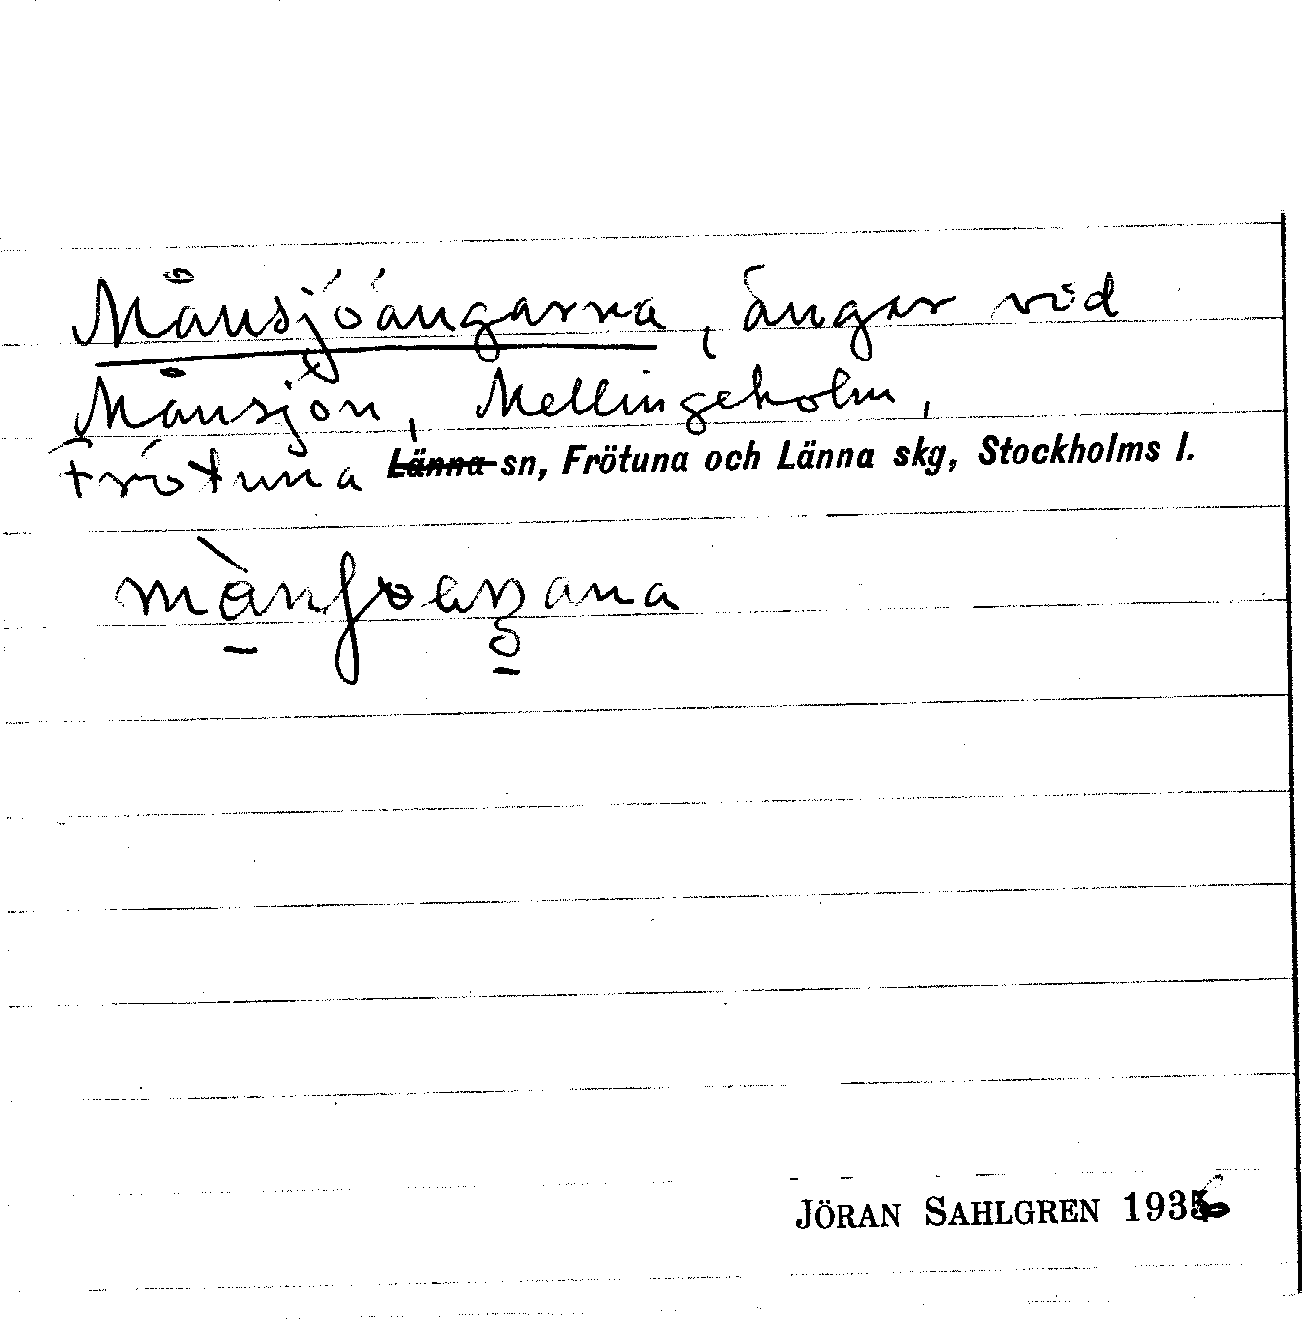 Månsjöängarna, ängar vid
Månsjön, Mellingeholm,
Frötuna Länna sn, Frötuna och Länna skg, Stockholms l.
JÖRAN SAHLGREN 1936